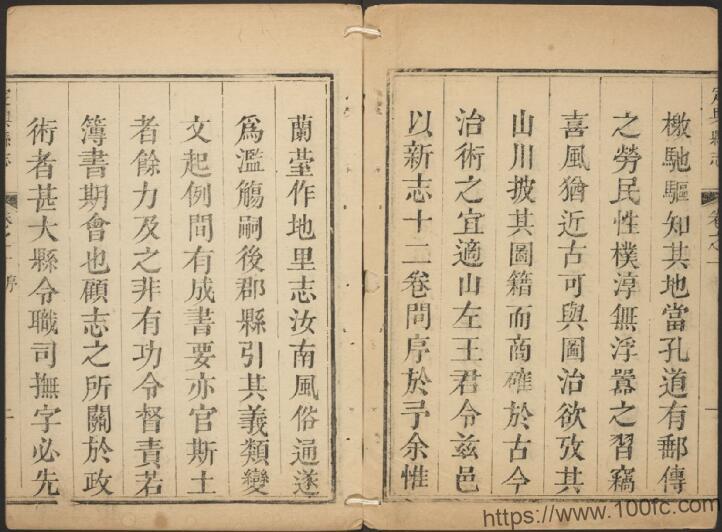 定興縣志
卷之一
檄馳驅知其地當孔道有郵傳
之勞民性樸淳無浮囂之習竊
喜風猶近古可與圖治欲攷其
山川披其圖籍而商確於古今
治術之宜適山左王君令兹邑
以新志十二卷問序於予余惟
蘭臺作地里志汝南風俗通遂
爲濫觴嗣後郡縣引其義類變
文起例間有成書要亦官斯土
者餘力及之非有功令督責若
簿書期會也顧志之所關於政
術者甚大縣令職司撫字必先
定興縣志
卷之一
序
https://www.100fc.com